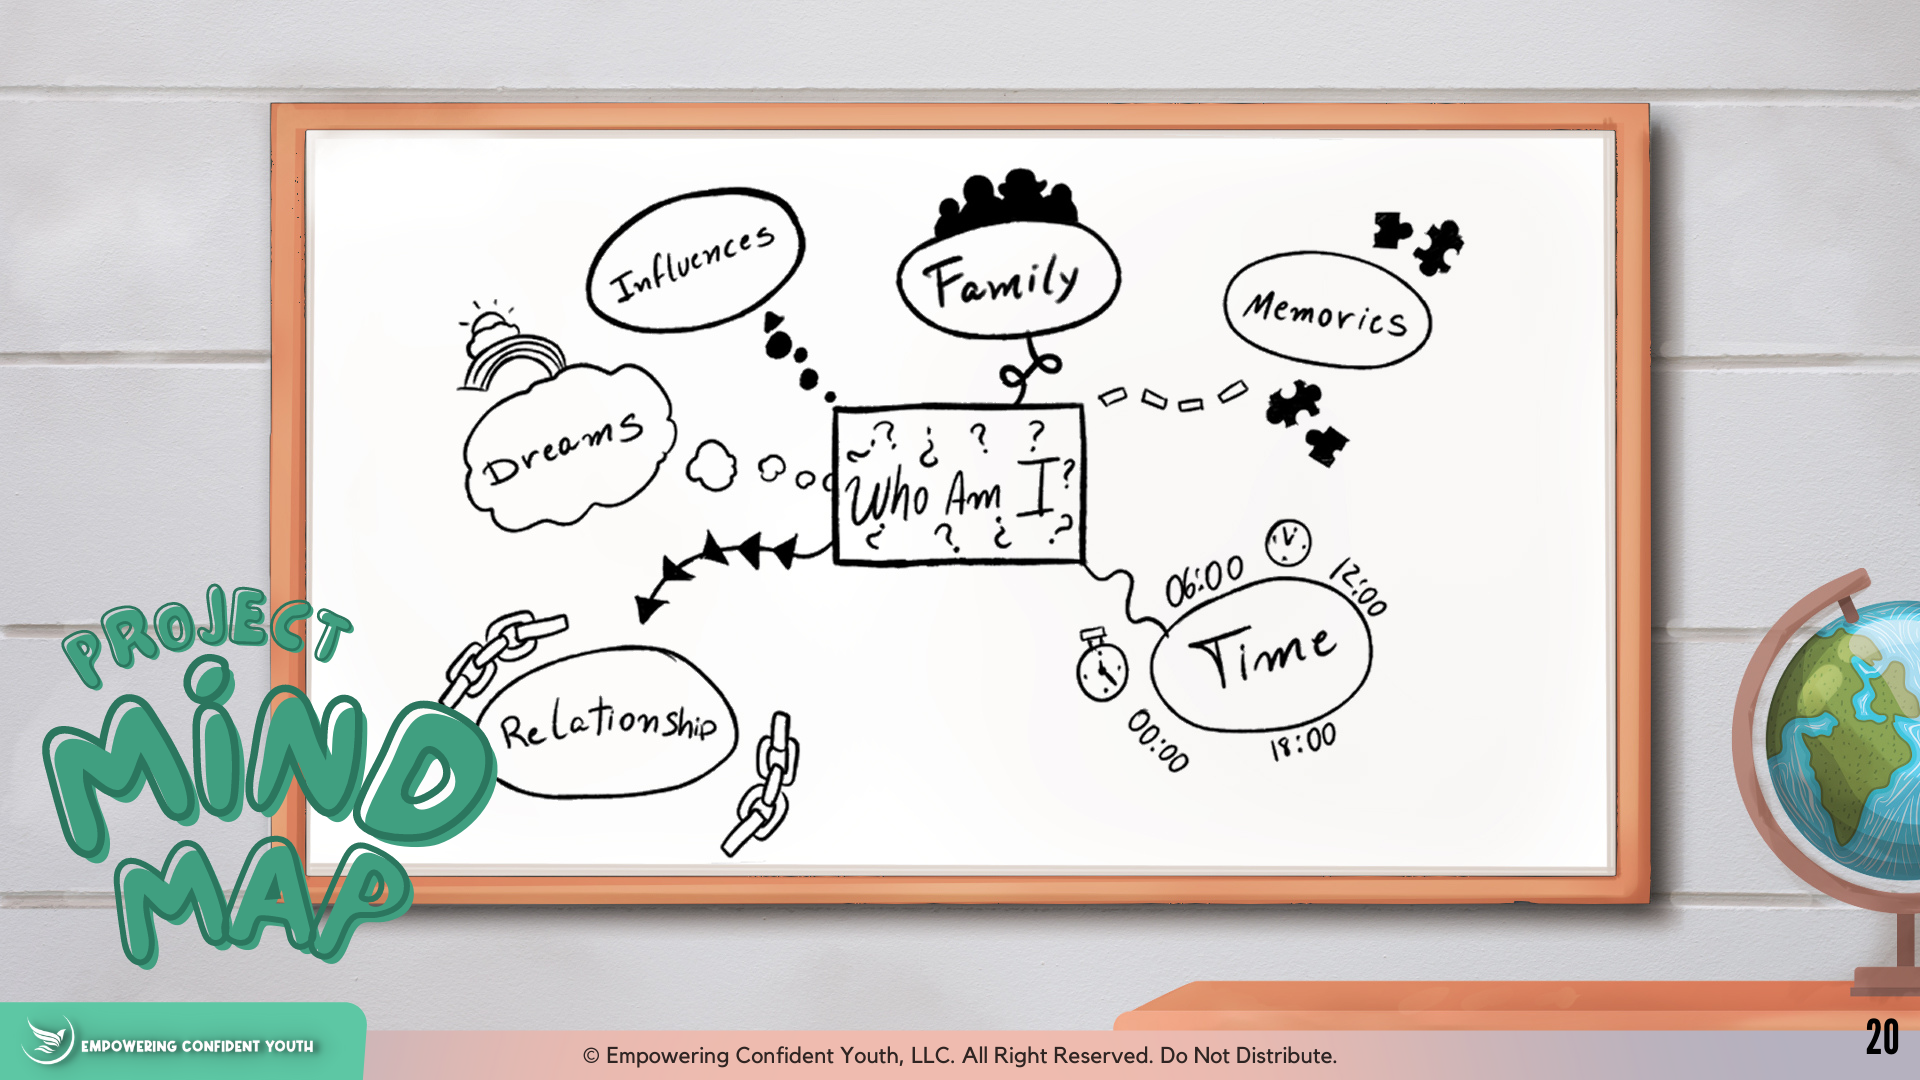 Influences
Family
Memories
Dreams
? ¿ ? ?
Who Am I ?
¿ ? ¿ ?
06:00
12:00
Time
00:00
18:00
Relationship
PROJECT
MiND
MAP
EMPOWERING CONFIDENT YOUTH
© Empowering Confident Youth, LLC. All Right Reserved. Do Not Distribute.
20